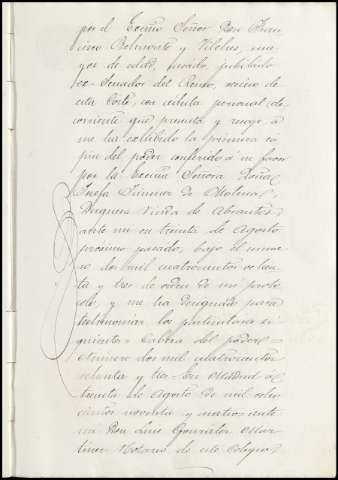 por el Excmo Señor Don Fran
cisco Belmonte y Vilches, ma
yor de edad, casado, jubilado
ex-Senador del Reino, vecino de
esta Corte, con cédula personal de
corriente que presenta y recoge, á
me ha exhibido la primera co
pia del poder conferido á su favor
por la Excma Señora Doña
Josefa Jimenez de Molina,
Duquesa Viuda de Abrantes
ante mi en treinta de Agosto
proximo pasado, bajo el nume
ro dos mil cuatrocientos ochen
ta y tres de orden de mi proto
colo, y me ha designado para
testimoniar los particulares si
guientes = Cabeza del poder =
Número dos mil cuatrocientos
ochenta y tres = En Madrid á
treinta de Agosto de mil ocho
cientos noventa y cuatro, ante
mi Don Luis Gonzalez Mar
tinez Notario de este Colegio